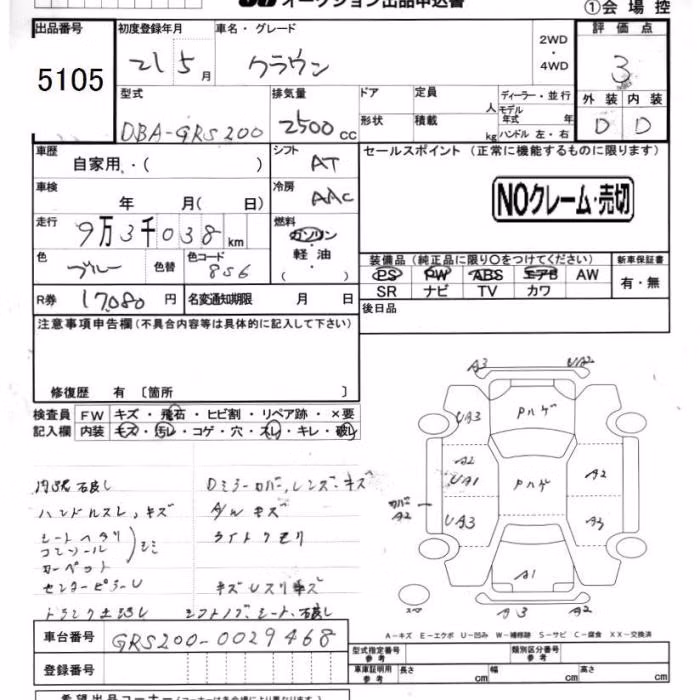 オークション出品申込書
①会場控
出品番号 5105
初度登録年月 21 5月
車名・グレード クラウン
2WD・4WD
評価点 3
外装 内装
D D
型式 DBA-GRS200
排気量 2500cc
ドア 形状
定員 人
積載 kg
ディーラー・並行
モデル年式 年
ハンドル 左・右
車歴 自家用・( )
シフト AT
セールスポイント (正常に機能するものに限ります)
NOクレーム・売切
車検 年 月( 日)
冷房 AAC
走行 9万3千038km
燃料 ガソリン・軽油・( )
色 ブルー 色替 色コード 8S6
装備品 (純正品に限り○をつけてください)
新車保証書
PS PW ABS エアB AW
SR ナビ TV カワ
有・無
R券 17,080円 名変通知期限 月 日
後日品
注意事項申告欄(不具合内容等は具体的に記入して下さい)
修復歴 有 〔箇所 〕
検査員記入欄
FW キズ・飛石・ヒビ割・リペア跡・×要
内装 キズ・汚レ・コゲ・穴・スレ・キレ・破レ
Dミラーカバー、レンズ、キズ
ハンドルスレ、キズ
A/Wキズ
シートヘタリ
コンソール
シミ
ライトクモリ
カーペット
センターピラーU
キズUスリキズ
シフトノブ、シート、
A3 UA2
UA3 Pハゲ
A2
UA1 Pハゲ A2
カバー A2
UA3 A3
A1
A3 A2
A-キズ E-エクボ U-凹み W-補修跡 S-サビ C-腐食 XX-交換済
車台番号 GRS200-0029468
型式指定番号 参考
類別区分番号 参考
登録番号
車庫証明用 参考 長さ cm 幅 cm 高さ cm
希望出品コーナー